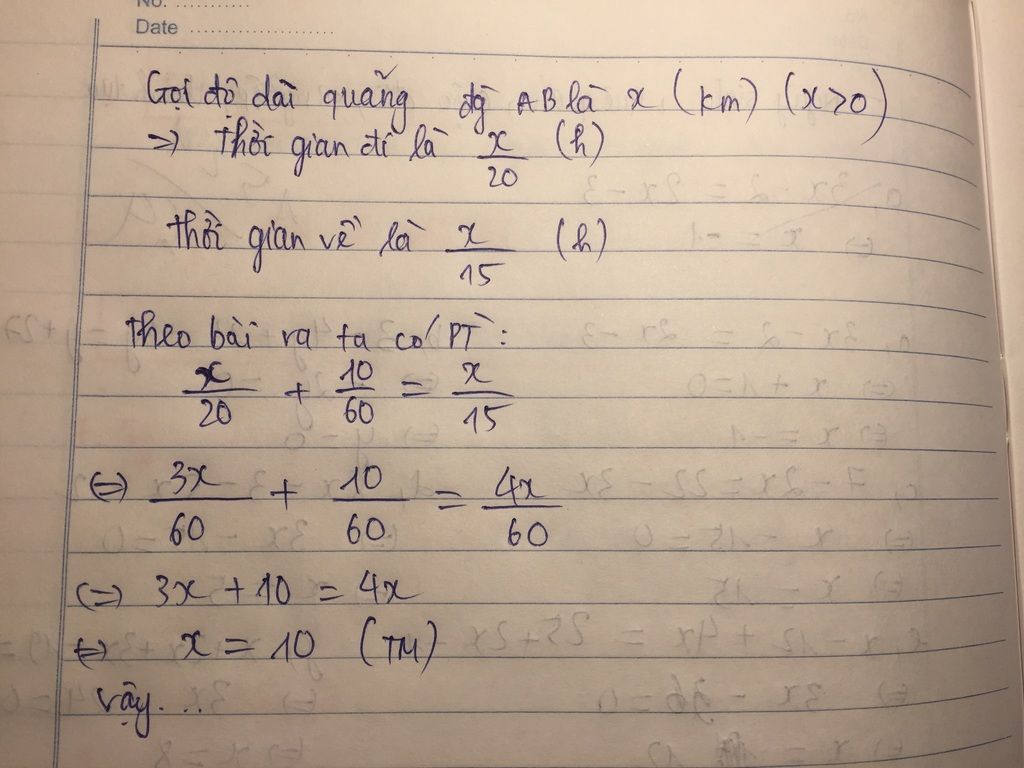 No. ............
Date ........................
Gọi độ dài quãng đg AB là x (km) (x>0)
=> Thời gian đi là x/20 (h)
Thời gian về là x/15 (h)
Theo bài ra ta có PT:
x/20 + 10/60 = x/15
<=> 3x/60 + 10/60 = 4x/60
<=> 3x + 10 = 4x
<=> x = 10 (TM)
Vậy...